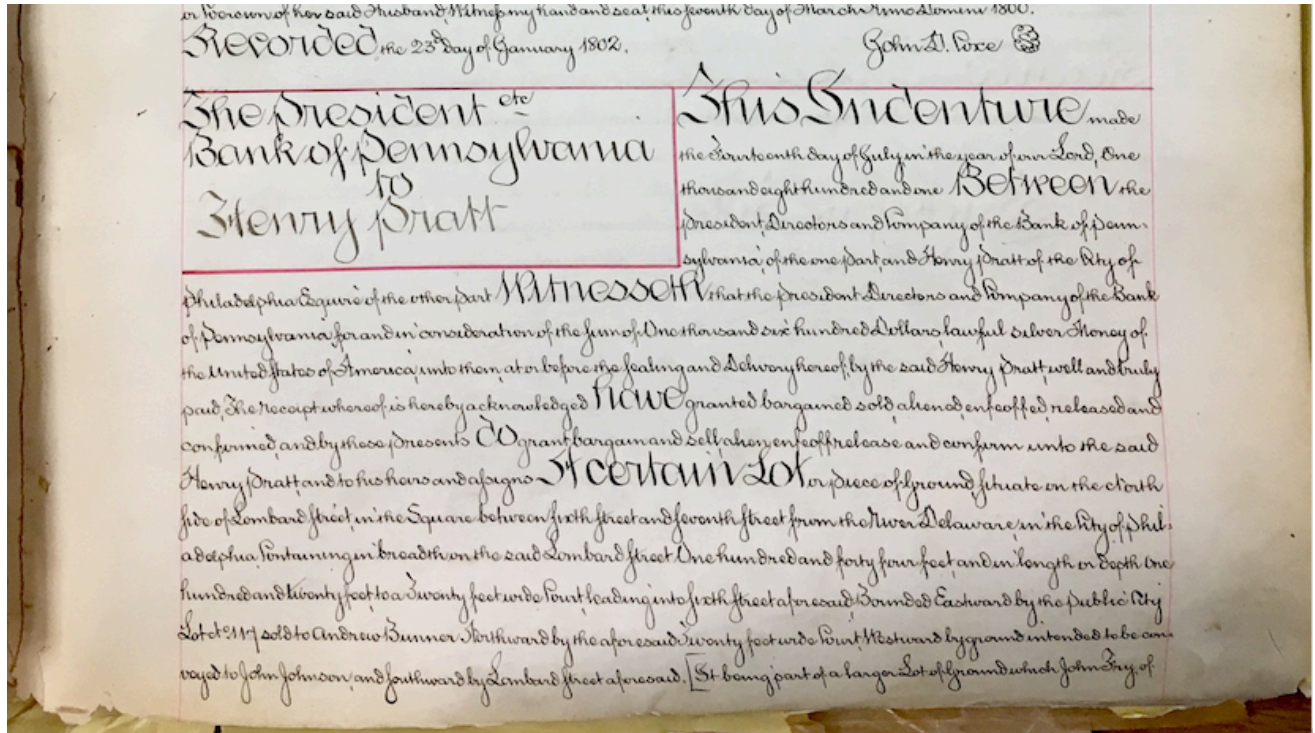 or Dower in of her said Husband, Witness my hand and seal, this seventh day of March Anno Domini 1800.
Recorded the 23d day of January 1802. John D. Coxe
The President etc
Bank of Pennsylvania
to
Henry Pratt
This Indenture made
the Fourteenth day of July, in the year of our Lord, One
thousand eight hundred and one Between the
President, Directors and Company of the Bank of Penn-
sylvania, of the one Part, and Henry Pratt of the City of
Philadelphia Esquire of the other Part Witnesseth, that the President Directors and Company of the Bank
of Pennsylvania, for and in consideration of the Sum of One thousand six hundred Dollars, lawful silver Money of
the United States of America, unto them, at or before the Sealing and Delivery hereof, by the said Henry Pratt, well and truly
paid, The receipt whereof is hereby acknowledged have granted bargained sold, aliened, enfeoffed, released and
confirmed, and by these Presents Do grant bargain and sell, alien, enfeoff release and confirm unto the said
Henry Pratt, and to his heirs and assigns A certain Lot or piece of Ground, situate on the North
side of Lombard Street, in the Square between Sixth Street and Seventh Street from the River Delaware, in the City of Phil-
adelphia, Containing in breadth on the said Lombard Street One hundred and forty four feet, and in length or depth One
hundred and twenty feet to a Twenty feet wide Court, leading into Sixth Street aforesaid, Bounded Eastward by the public City
Lot No. 117 sold to Andrew Bunner Northward by the aforesaid Twenty feet wide Court, Westward by ground intended to be con-
veyed to John Johnson, and Southward by Lombard Street aforesaid. [It being part of a larger Lot of Ground which John Fry, of